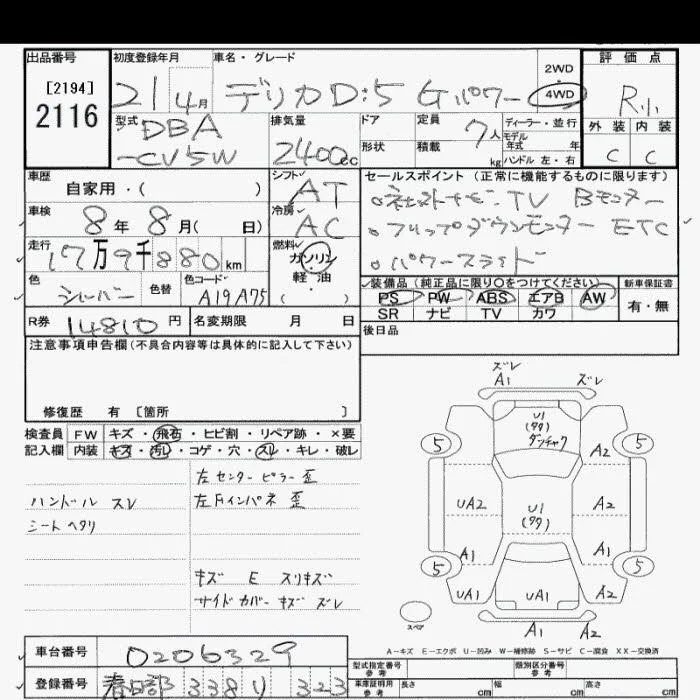 出品番号 初度登録年月 車名・グレード 評価点
[2194]
2116
21 4月 デリカD:5 Gパワー 2WD 4WD R小
型式 排気量 ドア 定員 ディーラー・並行 外装 内装
DBA 7人 モデル
-CV5W 2400cc 形状 積載 kg 年式 年 ハンドル 左・右 C C
車歴 シフト セールスポイント(正常に機能するものに限ります)
自家用・( ) AT TV Bモニター
車検 8年 8月( 日) 冷房 AC フリップダウンモニター ETC
走行 17万9千880km 燃料 ガソリン パワースライド
軽・油
色 シルバー 色替 色コード A19 A75 ( )
装備品(純正品に限り○をつけてください) 新車保証書
PS PW ABS エアB AW 有・無
SR ナビ TV カワ
R券 14810円 名変期限 月 日 後日品
注意事項申告欄(不具合内容等は具体的に記入して下さい)
修復歴 有 [箇所 ]
検査員 FW キズ・飛石・ヒビ割・リペア跡・×要
記入欄 内装 キズ・汚レ・コゲ・穴・スレ・キレ・破レ
左センターピラー歪
ハンドル スレ 左Fインパネ 歪
シート ヘタリ
キズ E スリキズ
サイドカバー キズ ズレ
ズレ
A1 ズレ
U1
(タタ)
5 5
A2
UA2 U1 A2
(タタ)
A1 A1
5 5
UA1 UA1 A2
スペア A1 A2
A-キズ E-エクボ U-凹み W-補修跡 S-サビ C-腐食 XX-交換済
車台番号 0206329 型式指定番号 参考 類別区分番号 参考
登録番号 春日部 338 り 323 車庫証明用 参考 長さ cm 幅 cm 高さ cm